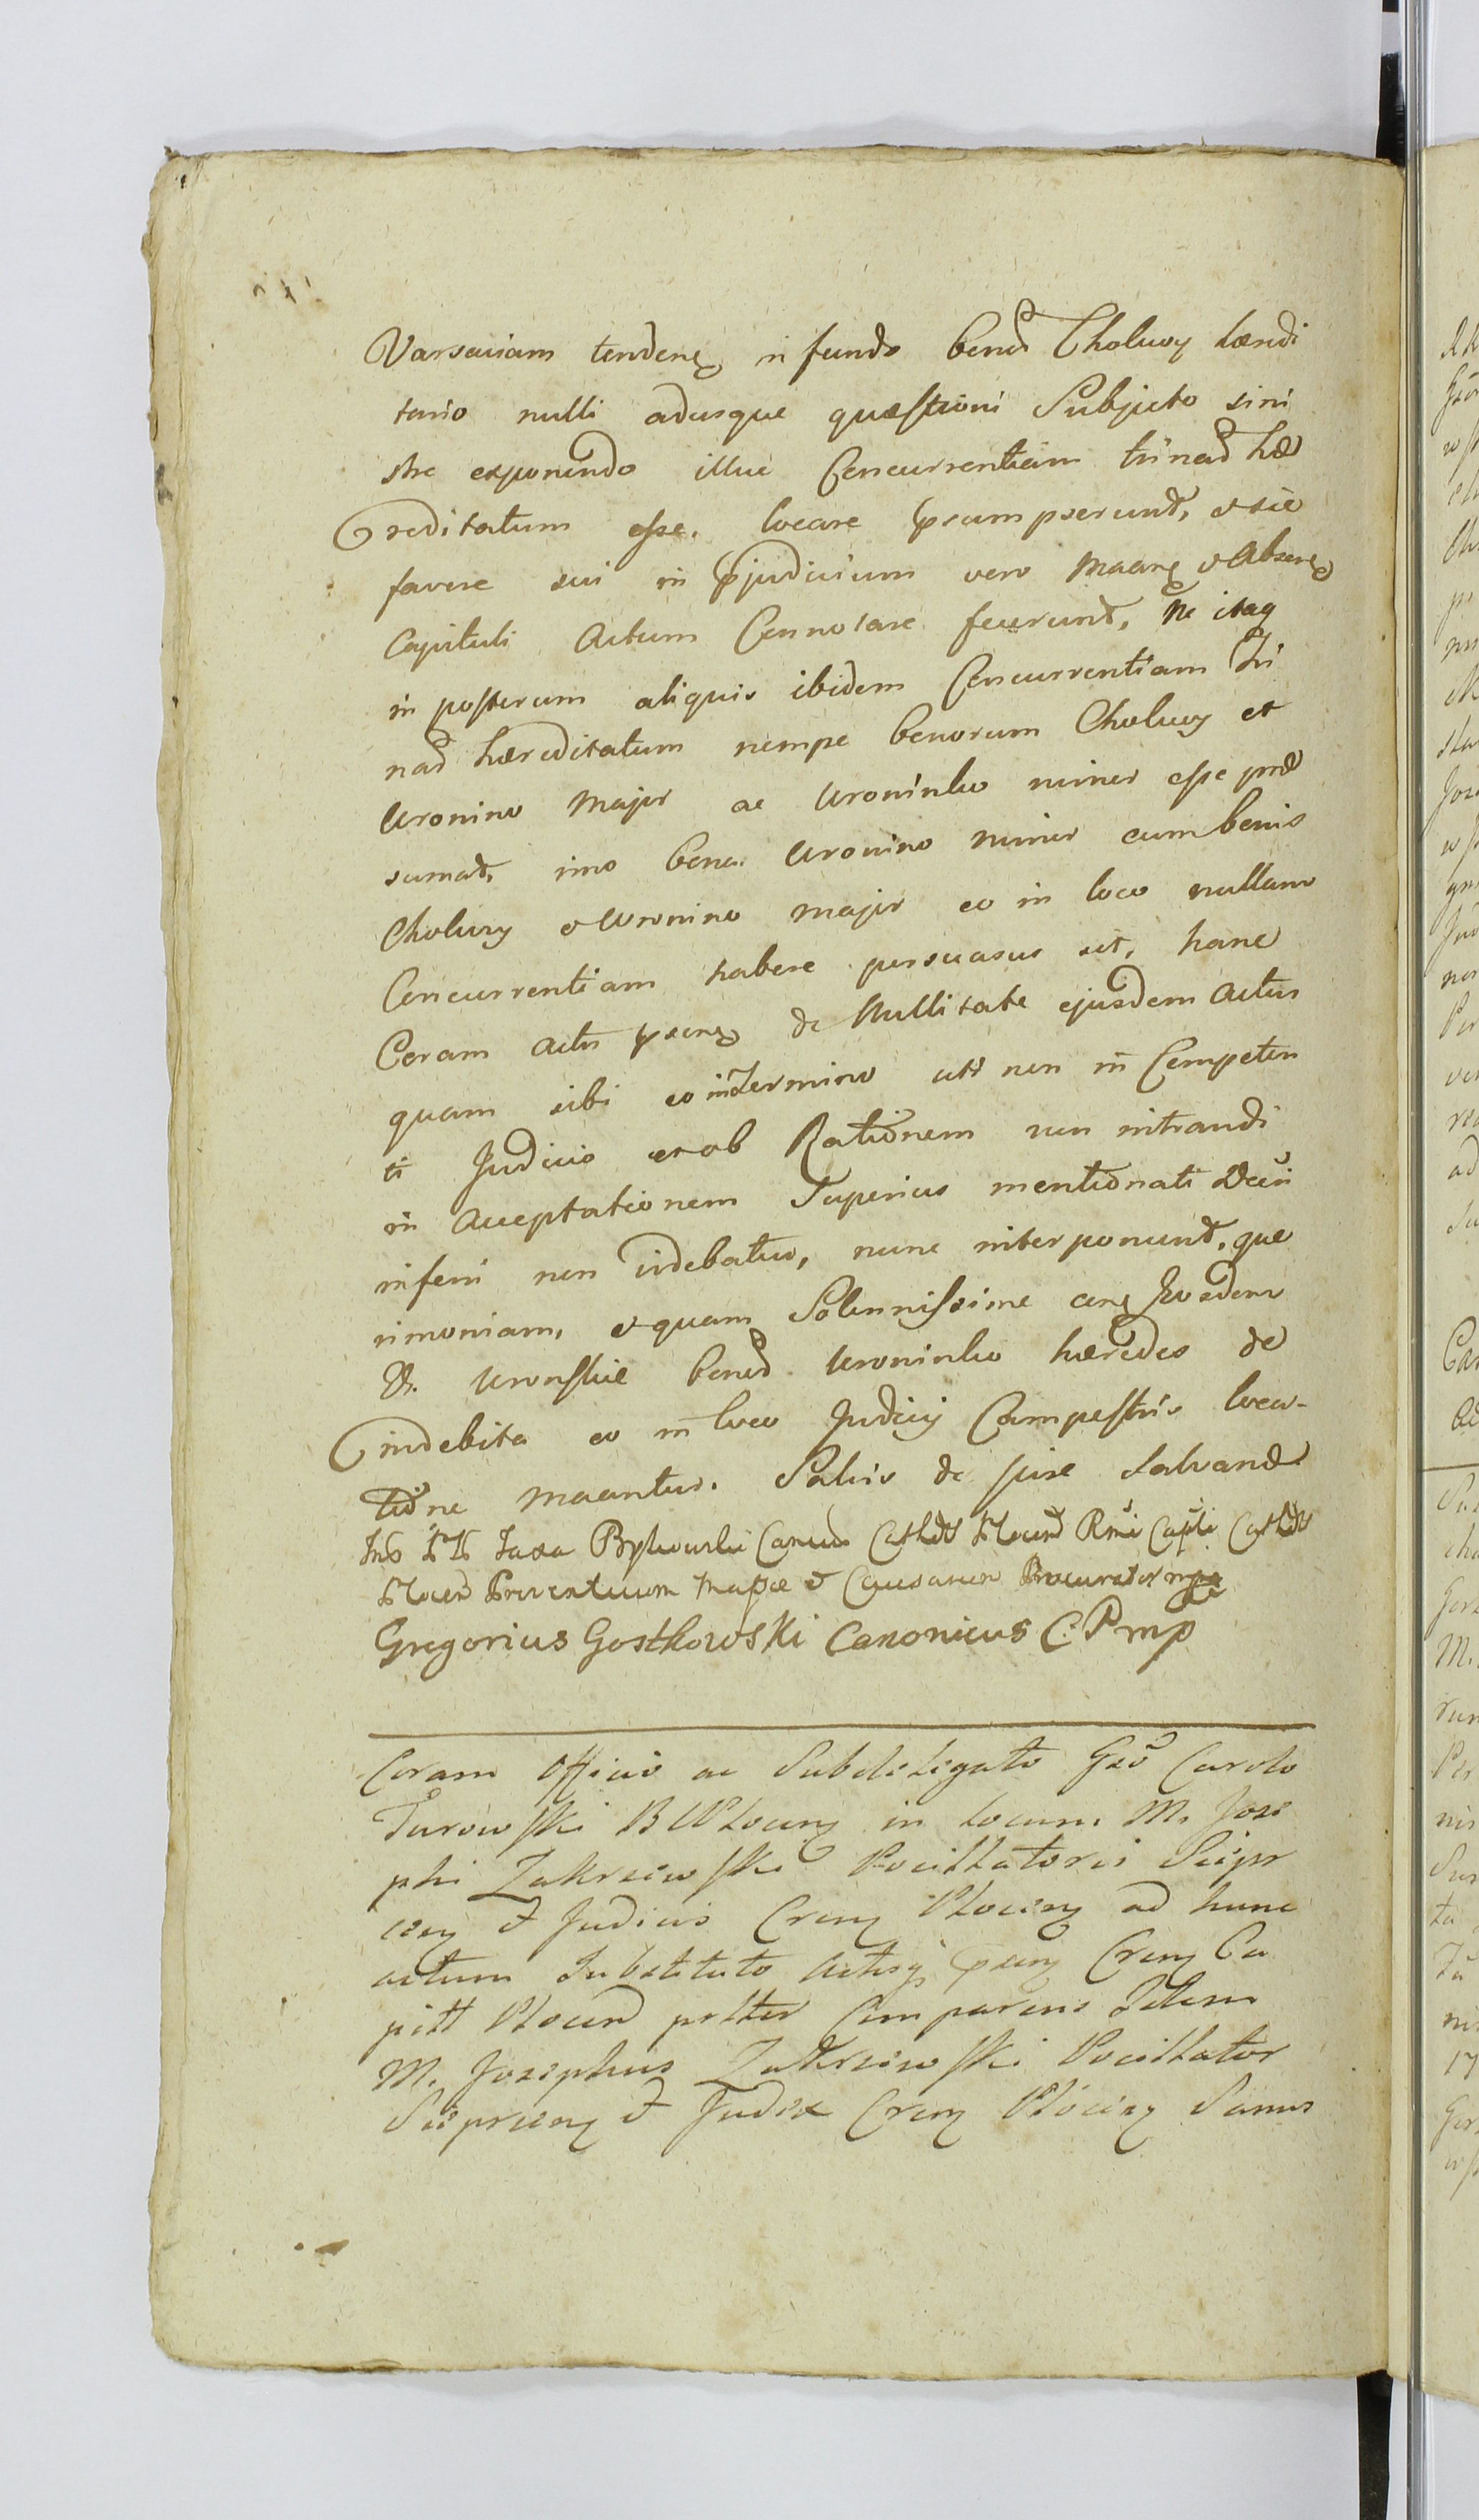 Varsaviam tendene in fundo bonor Cholewy hæredi
tario nulli adusque quæstioni Subjecto sini
stre exponendo illuc Concurrentiam trinar hæ
reditatum esse, locare præsumpserunt, et sic
favore sui in præjudicium vero Maane et Absene
Capituli Actum Connotare fecerunt, Ne itaq
in posterum aliquis ibidem Concurrentiam Tri
nar hæreditatum nempe bonorum Cholewy et
Wronino Major ac Wroninko minor esse præ
sumat, imo bona Wronino minor cum bonis
Cholewy et Wronino major eo in loco nullam
Concurrentiam habere persuasus sit, hanc
Coram Actis præsene de Nullitate ejusdem Actus
quam sibi eo in Termino utt non in Competen
ti Judicio et ob Rationem non intrandi
in Acceptationem Superius mentionati Decri
inferri non videbatur, nunc interponunt, que
rimoniam, et quam Solennissime cone Eosdem
G. Wronskie bonor Wroninko hæredes de
indebita eo in loco Judicij Campestris loca-
tione maantur. Salvis de jure Salvand
Jaxa Bykowski Canon Cathdr Plocen Rmi Capli Cathdr
Plocen Proventuum Mapæ et Causarum Procurator mpa
Gregorius Gostkowski Canonicus C: P mp
Coram Officio ac Subdelegato Gso Carolo
Turowski B Plocen in locum M. Jose
phi Zakrzewski Pocillatoris Sierpr
cen et Judicis Cren Plocen ad hunc
actum Substituto Actisq præsen Cren Ca
pitt Plocen psltter Comparens Idem
M. Josephus Zakrzewski Pocillator
Sierprcen et Judex Cren Plocen Sanus